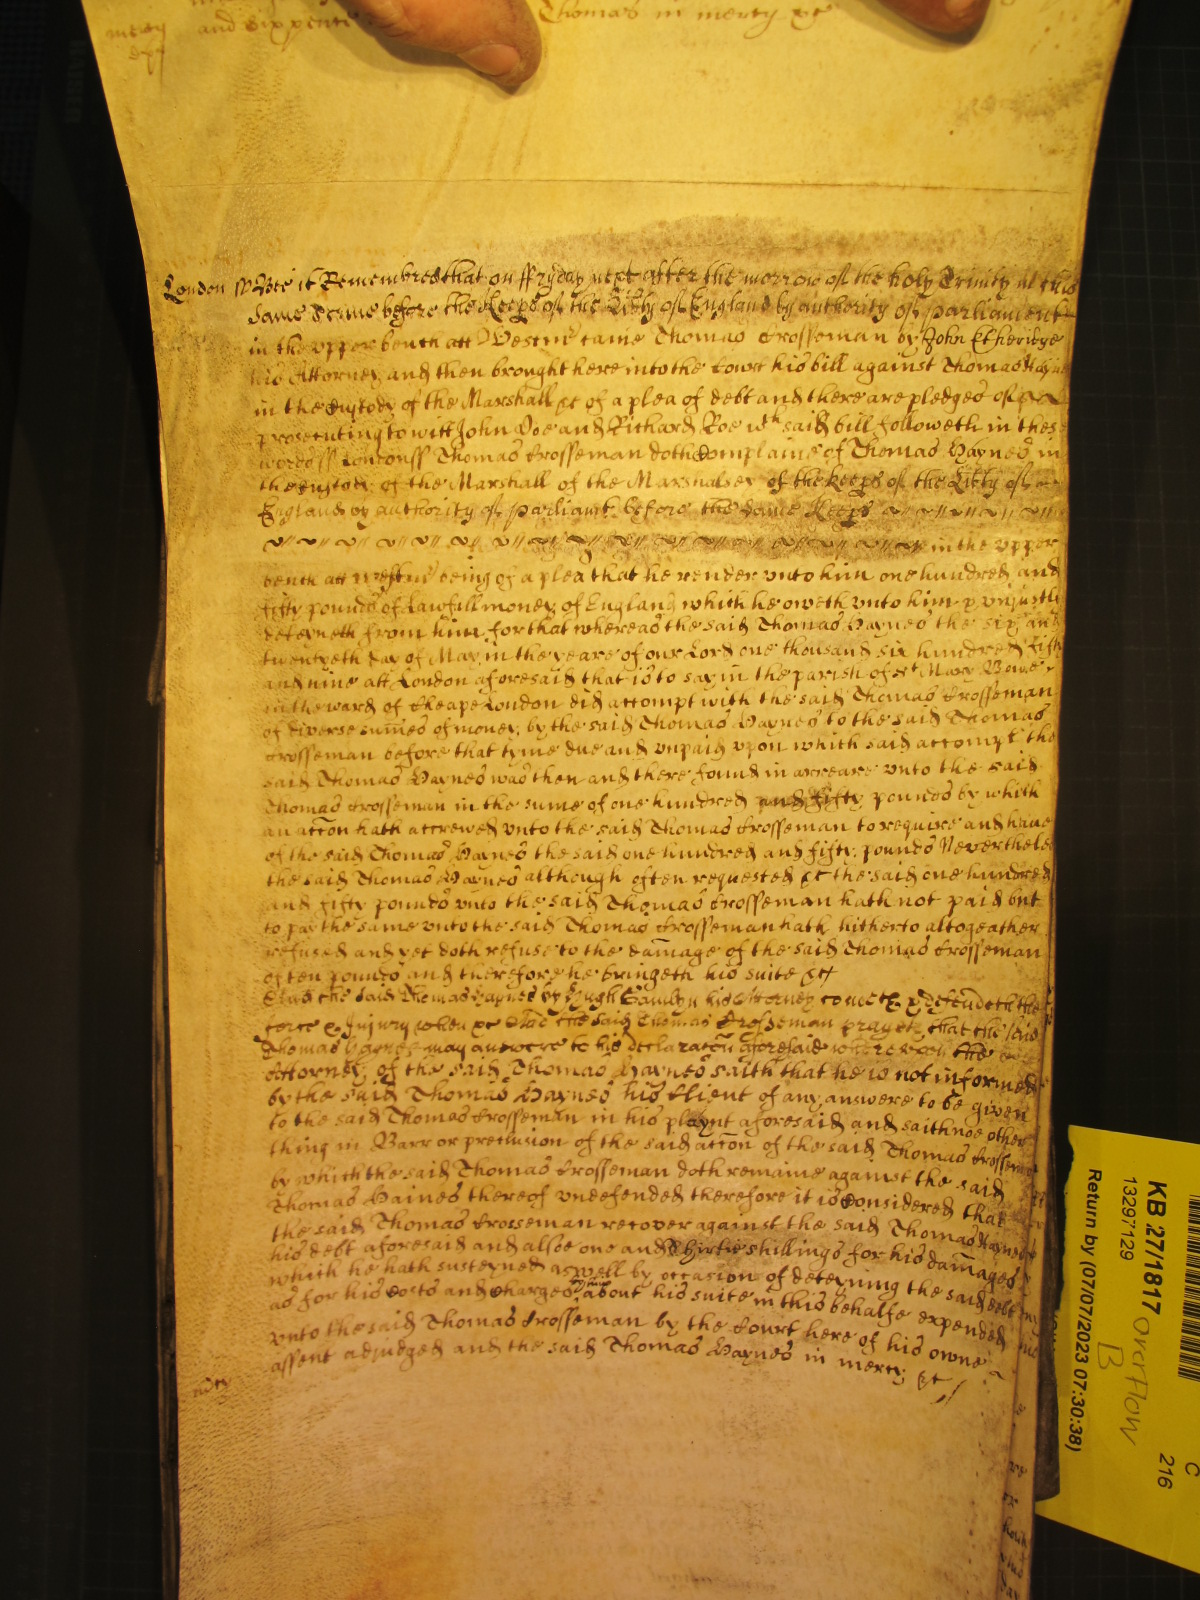 mercy and sixpence Thomas in mercy &c
London ss Bee it Remembred that on ffryday next after the morrow of the holy Trinity in this
same Terme before the Keeps of the Libty of England by authority of parliament
in the upper bench att Westmr came Thomas Crosseman by John Etheridge
his Attorney and then brought here into the Court his bill against Thomas Haynes
in the Custody of the Marshall &c of a plea of debt and there are pledges of
prosecuting to witt John Doe and Richard Roe wch said bill followeth in these
words ss London ss Thomas Crosseman doth Complaine of Thomas Haynes in
the Custody of the Marshall of the Marshalsey of the Keeps of the Libty of
England by authority of parliamt before the same Keeps
in the upper
bench att Westmr being of a plea that he render unto him one hundred and
fifty pounds of Lawfull money of England which he oweth unto him & unjustly
deteyneth from him for that whereas the said Thomas Haynes the six and
twentyeth day of May in the yeare of our Lord one thousand six hundred fifty
and nine att London aforesaid that is to say in the parish of St Mary Bowe
in the ward of Cheape London did accompt with the said Thomas Crosseman
of diverse sumes of money by the said Thomas Haynes to the said Thomas
Crosseman before that tyme due and unpaid upon which said accompt the
said Thomas Haynes was then and there found in arreare unto the said
Thomas Crosseman in the sume of one hundred and fifty pounds by which
an accon hath accrewed unto the said Thomas Crosseman to require and have
of the said Thomas Haynes the said one hundred and fifty pounds Neverthelesse
the said Thomas Haynes although often requested &c the said one hundred
and fifty pounds unto the said Thomas Crosseman hath not paid but
to pay the same unto the said Thomas Crosseman hath hitherto altogeather
refused and yet doth refuse to the damage of the said Thomas Crosseman
of ten pounds and therefore he bringeth his suite &c
And the said Thomas Haynes by Hugh Hamlyn his Attorney cometh & defendeth the
force & Injury when &c And the said Thomas Crosseman prayeth that the said
Thomas Haynes may answere to his declaracon aforesaid whereupon the
Attorney of the said Thomas Haynes saith that he is not informed
by the said Thomas Haynes his Client of any answere to be given
to the said Thomas Crosseman in his playnt aforesaid and saith noe other
thing in Barr or preclusion of the said accon of the said Thomas Crosseman
by which the said Thomas Crosseman doth remaine against the said
Thomas Haines thereof undefended therefore it is Considered that
the said Thomas Crosseman recover against the said Thomas Haynes
his debt aforesaid and alsoe one and Thirtie shillings for his damages
which he hath susteyned aswell by occasion of deteyning the said debt
as for his Costs and Charges by him about his suite in this behalfe expended
unto the said Thomas Crosseman by the Court here of his owne
assent adjudged and the said Thomas Haynes in mercy &c
mercy
KB 27/1817
13297129
Return by (07/07/2023 07:30:38)
overflow
B
C
216